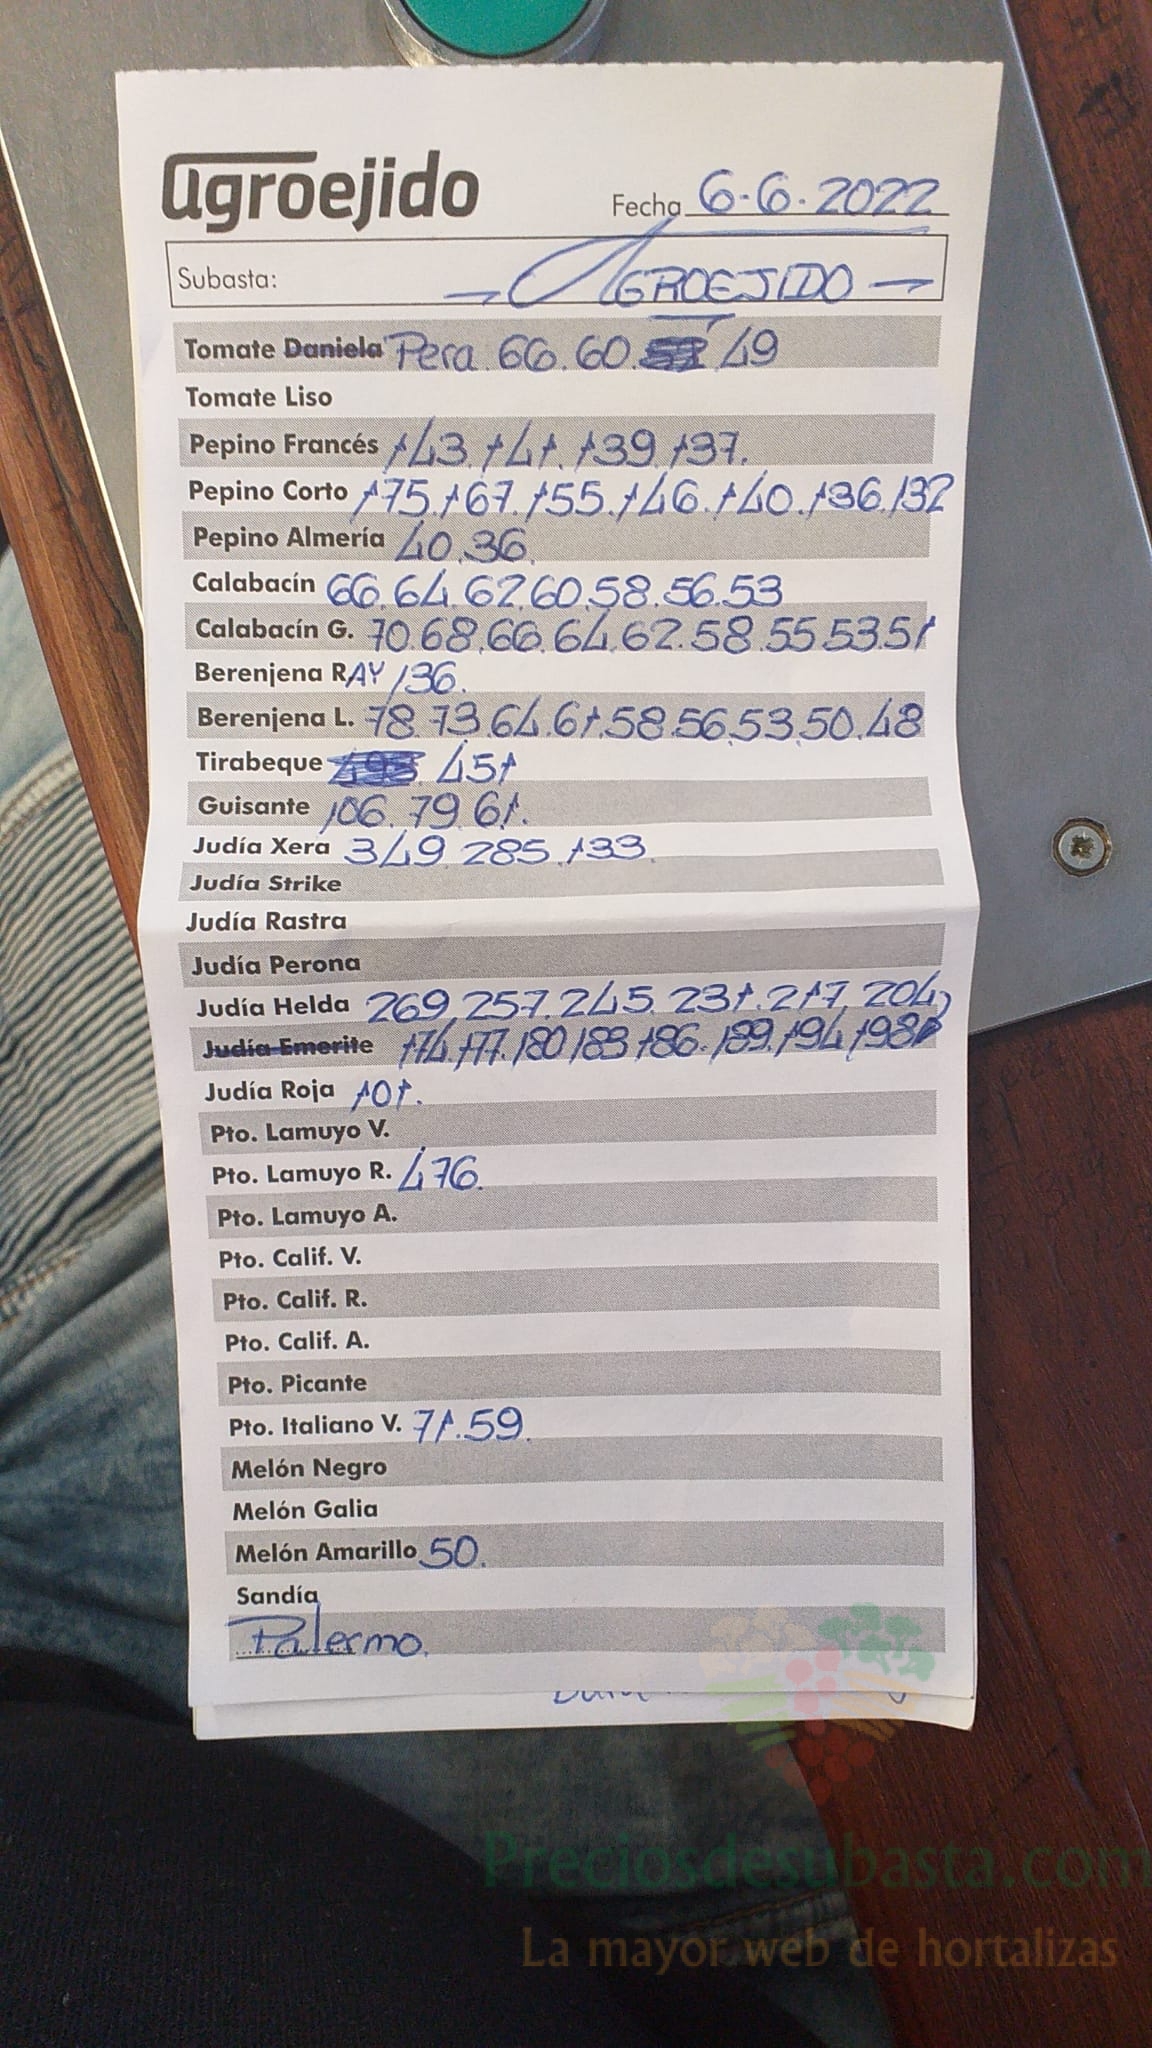 agroejido
Fecha 6-6-2022
Subasta: AGROEJIDO
Tomate Daniela Pera. 66. 60. 49
Tomate Liso
Pepino Francés 143. 141. 139. 137.
Pepino Corto 175. 167. 155. 146. 140. 136. 132
Pepino Almería 40. 36.
Calabacín 66. 64. 62. 60. 58. 56. 53
Calabacín G. 70. 68. 66. 64. 62. 58. 55. 53. 51
Berenjena RAY 136.
Berenjena L. 78. 73. 64. 61. 58. 56. 53. 50. 48
Tirabeque 451
Guisante 106. 79. 61.
Judía Xera 349. 285. 133.
Judía Strike
Judía Rastra
Judía Perona
Judía Helda 269. 257. 245. 231. 217. 204
Judía Emerite 174. 177. 180. 183. 186. 189. 194. 198
Judía Roja 101.
Pto. Lamuyo V.
Pto. Lamuyo R. 476.
Pto. Lamuyo A.
Pto. Calif. V.
Pto. Calif. R.
Pto. Calif. A.
Pto. Picante
Pto. Italiano V. 71. 59.
Melón Negro
Melón Galia
Melón Amarillo 50.
Sandía
Palermo.
Preciosdesubasta.com
La mayor web de hortalizas